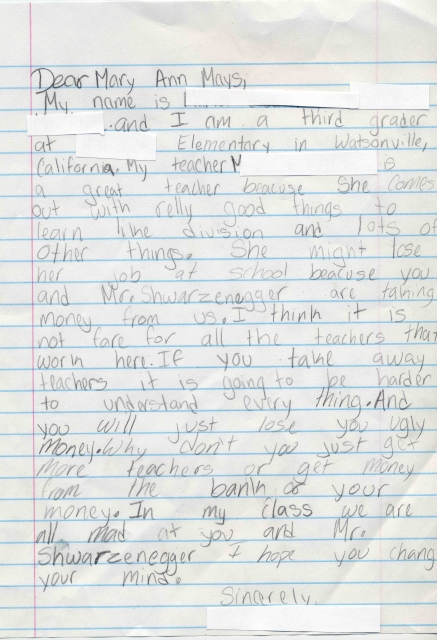 Dear Mary Ann Mays,
My name is
and I am a third grader
at Elementary in Watsonville,
California. My teacher M is
a great teacher beacuse She comes
out with relly good things to
learn like division and lots of
other things. She might lose
her job at school beacuse you
and Mr. Shwarzenegger are taking
money from us. I think it is
not fare for all the teachers that
work here. If you take away
teachers it is going to be harder
to understand every thing. And
you will just lose you ugly
money. Why don't you just get
more teachers or get money
from the bank or your
money. In my class we are
all mad at you and Mr.
Shwarzenegger I hope you chang
your mind.
Sincerely,